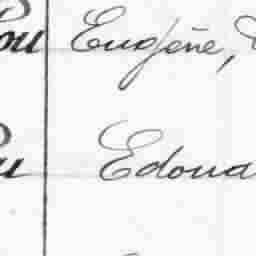 ou Eugène,
u Edoua